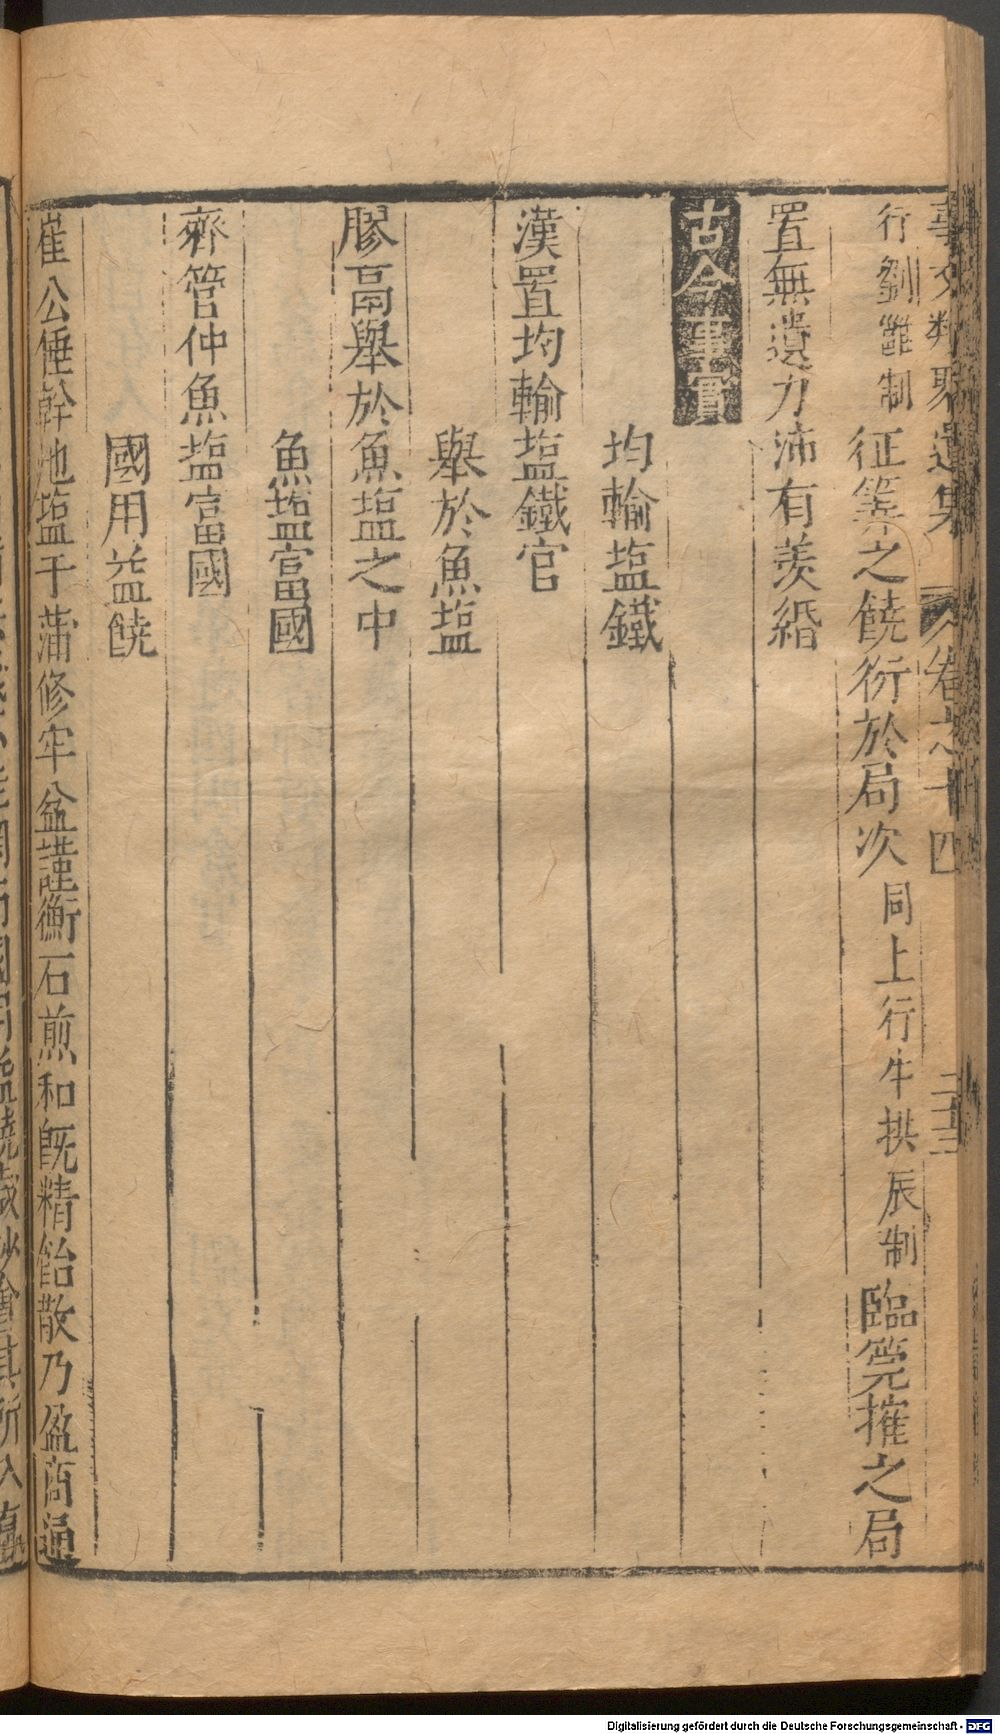 事文類聚遺集 卷之十四 二十三
行劉䨇制 征筭之饒衍於局次 同上行牛拱辰制 臨筦搉之局
置無遺力沛有羡緡
古今事實
均輸塩鐵
漢置均輸塩鐵官
舉於魚塩
膠鬲舉於魚塩之中
魚塩富國
齊管仲魚塩富國
國用益饒
崔公倕幹池塩于蒲修牢盆謹衡石煎和旣精飴散乃盈商通
Digitalisierung gefördert durch die Deutsche Forschungsgemeinschaft - DFG